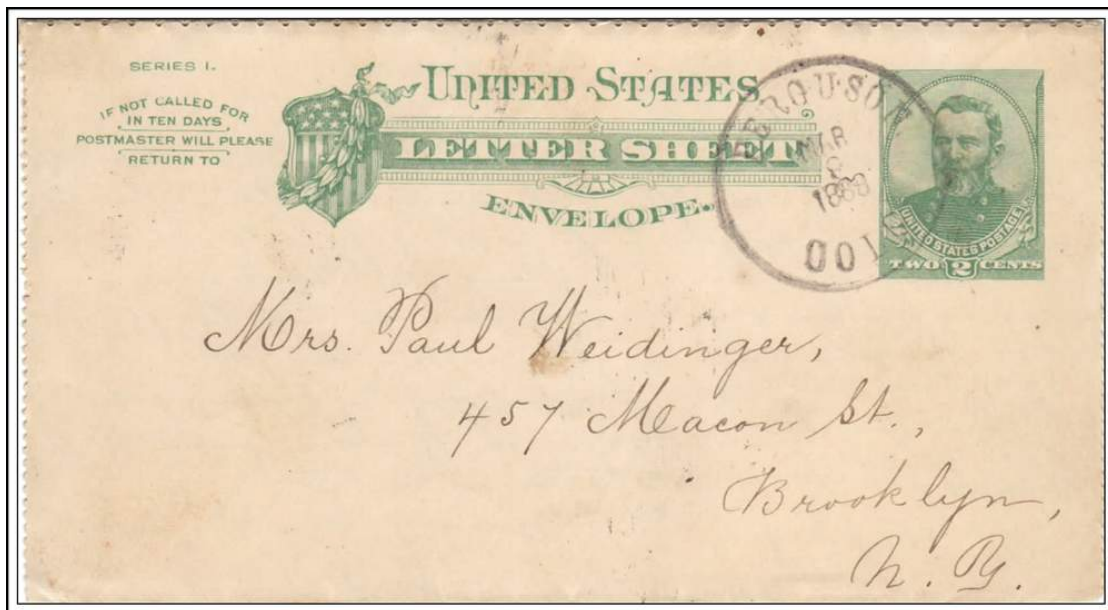 SERIES 1.
IF NOT CALLED FOR
IN TEN DAYS
POSTMASTER WILL PLEASE
RETURN TO
UNITED STATES
LETTER SHEET
ENVELOPE.
MAR
1888
UNITED STATES POSTAGE
TWO 2 CENTS
Mrs. Paul Weidinger,
457 Macon St.,
Brooklyn,
N. Y.